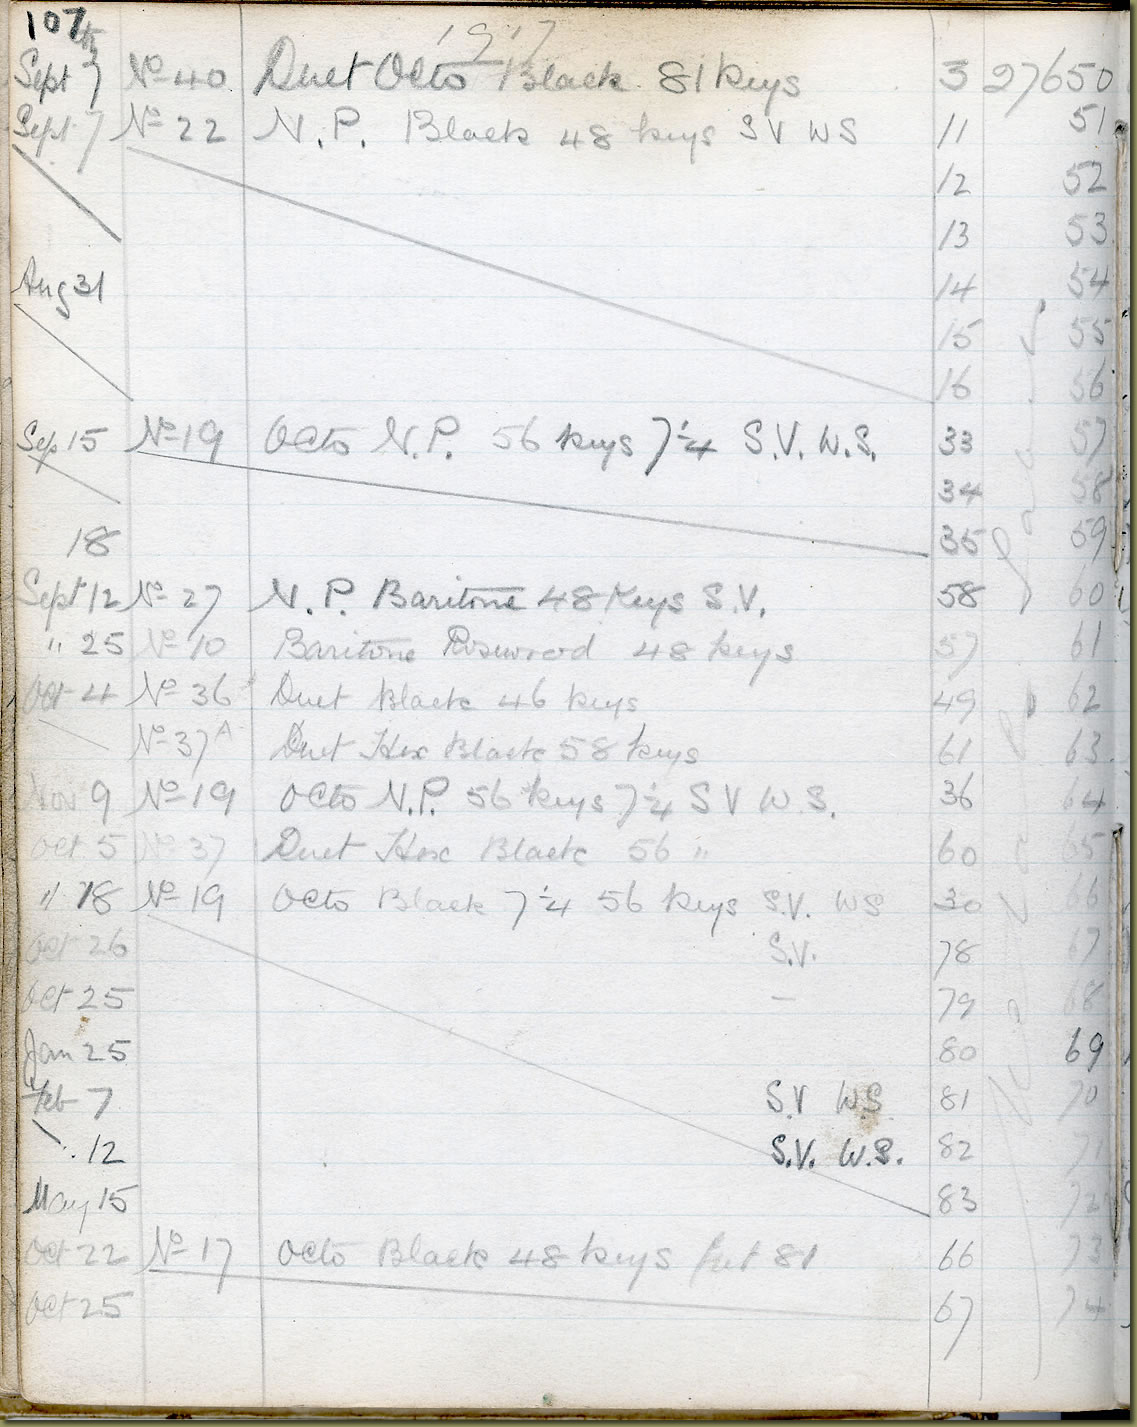 107
1917
Sept 7 No 40 Duet Octo Black 81 keys 3 27650
Sept 7 No 22 N.P. Black 48 keys S V W S 11 51
12 52
13 53
Aug 31 14 54
15 55
16 56
Sep 15 No 19 Octo N.P. 56 keys 7 1/4 S.V. W.S. 33 57
34 58
18 35 59
Sept 12 No 27 N.P. Baritone 48 Keys S.V. 58 60
" 25 No 10 Baritone Rosewood 48 keys 57 61
Oct 4 No 36 Duet Black 46 keys 49 62
No 37A Duet Hex Black 58 keys 61 63
Nov 9 No 19 Octo N.P. 56 keys 7 1/4 S V W.S. 36 64
Oct 5 No 37 Duet Hex Black 56 " 60 65
" 18 No 19 Octo Black 7 1/4 56 keys S.V. WS 30 66
Oct 26 S.V. 78 67
Oct 25 — 79 68
Jan 25 80 69
Feb 7 S.V W.S 81 70
12 S.V. W.S. 82 71
May 15 83 72
Oct 22 No 17 Octo Black 48 keys 81 66 73
Oct 25 67 74